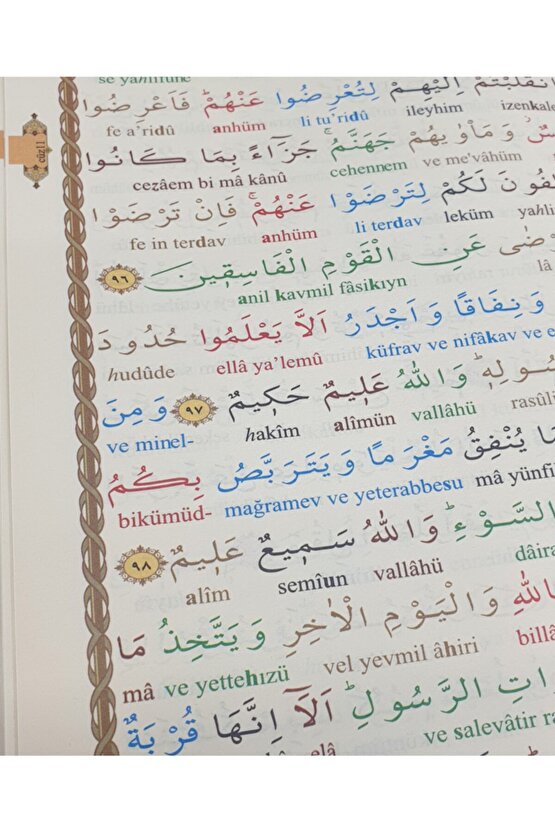 انْقَلَبْتُمْ اِلَيْهِمْ لِتُعْرِضُوا عَنْهُمْ فَاَعْرِضُوا
fe a'ridû anhüm li tu'ridû ileyhim izenkale
وَمَأْوٰيهُمْ جَهَنَّمُ جَزَاءً بِمَا كَانُوا
cezâem bi mâ kânû cehennem ve me'vâhüm
لَكُمْ لِتَرْضَوْا عَنْهُمْ فَاِنْ تَرْضَوْا
fe in terdav anhüm li terdav leküm yahli
عَنِ الْقَوْمِ الْفَاسِقٖينَ ٩٦
anil kavmil fâsikıyn lâ
وَنِفَاقًا وَاَجْدَرُ اَلَّا يَعْلَمُوا حُدُودَ
hudûde ellâ ya'lemû küfrav ve nifâkav ve e
وَاللّٰهُ عَلٖيمٌ حَكٖيمٌ ٩٧ وَمِنَ
ve minel- hakîm alîmün vallâhü rasûli
يُنْفِقُ مَغْرَمًا وَيَتَرَبَّصُ بِكُمُ
bikümüd- mağramev ve yeterabbesu mâ yünfi
السَّوْءِ وَاللّٰهُ سَمٖيعٌ عَلٖيمٌ ٩٨
alîm semîun vallâhü dâira
وَالْيَوْمِ الْاٰخِرِ وَيَتَّخِذُ مَا
mâ ve yettehızü vel yevmil âhiri billâ
الرَّسُولِ اَلَا اِنَّهَا قُرْبَةٌ
elâ ve salevâtir ra
cüz 11